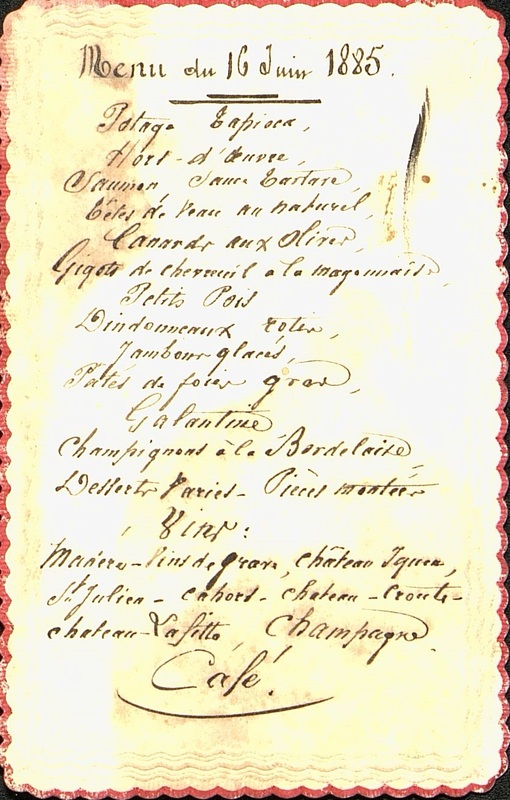 Menu du 16 Juin 1885.
Potage Tapioca,
Hors-d'œuvre,
Saumon, Sauce Tartare,
Têtes de Veau au naturel,
Canards aux Olives,
Gigots de chevreuil à la mayonnaise,
Petits Pois
Dindonneaux rotis,
Jambons glacés,
Patés de foies gras,
Galantine
Champignons à la Bordelaise,
Desserts Variés - Pièces montées
Vins:
Madère - Vins de grave, château Iquem,
St Julien - Cahors - chateau - Croute -
chateau-Lafitte, Champagne.
Café.